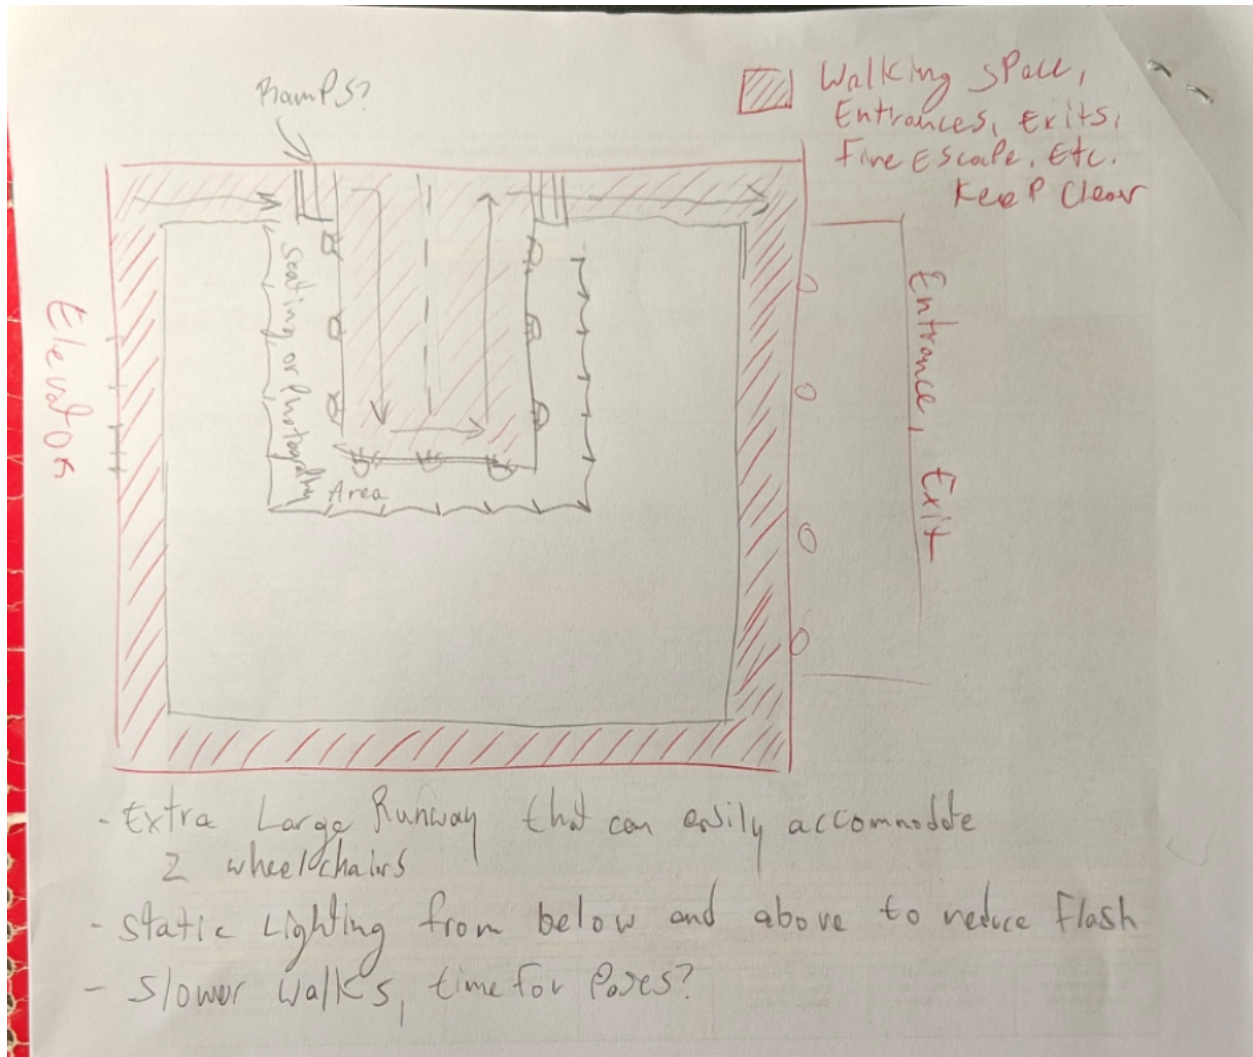 Ramps?
Walking space,
Entrances, Exits,
Fire Escape, Etc.
Keep Clear
Elevator
Seating or Photography
Area
Entrance, Exit
- Extra Large Runway that can easily accommodate
2 wheelchairs
- Static Lighting from below and above to reduce flash
- Slower walks, time for Poses?